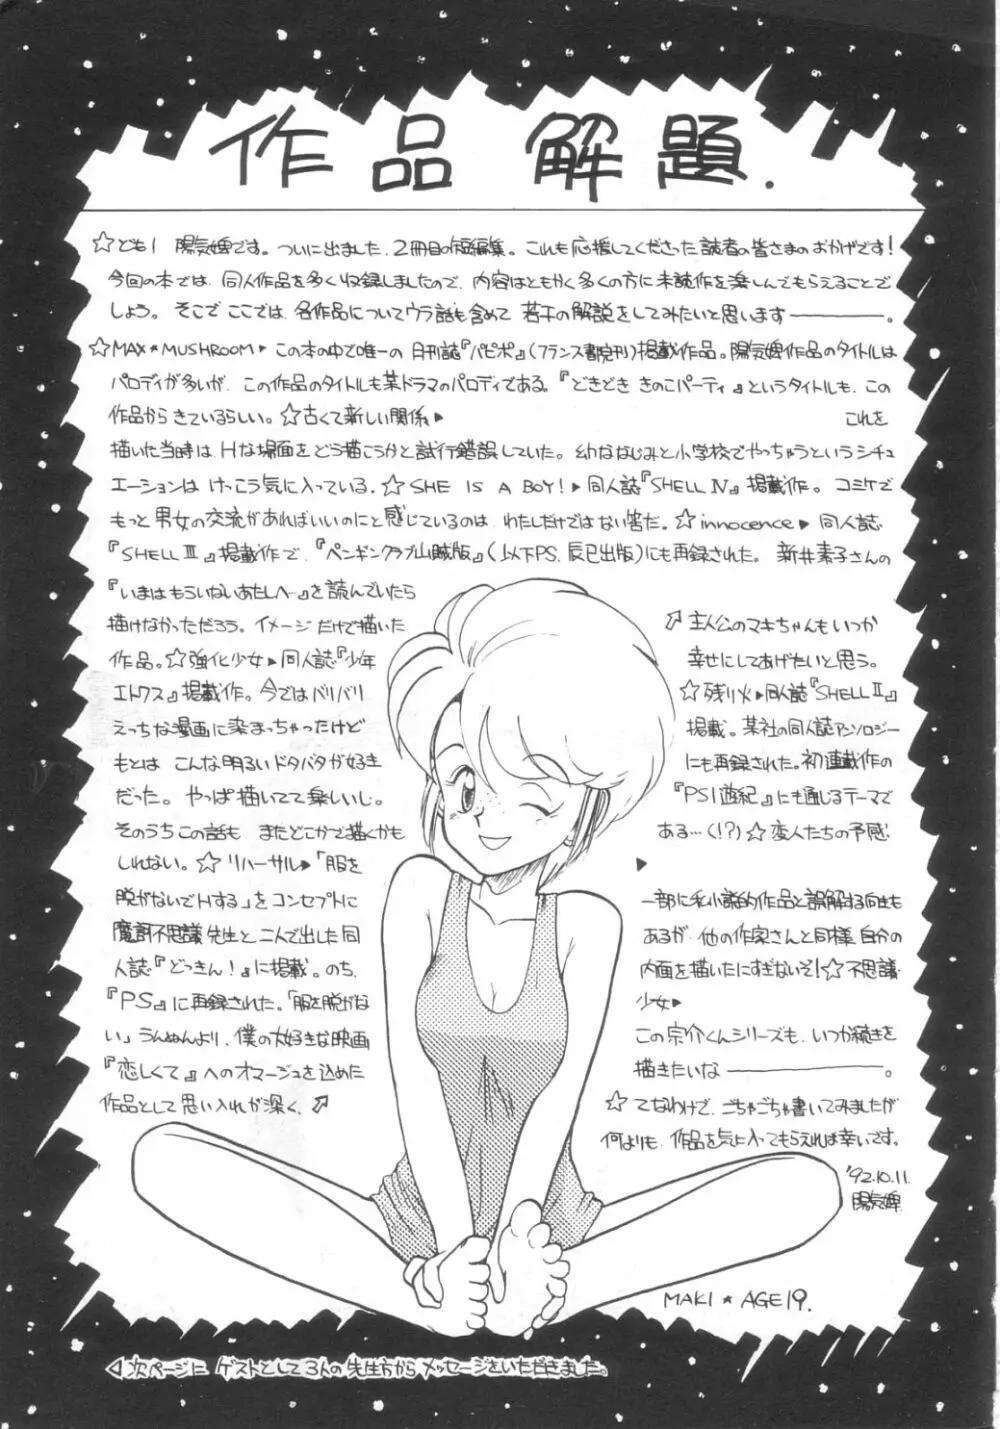 作品 解題.
☆ども! 陽気婢です。ついに出ました、2冊目の短編集。これも応援してくださった読者の皆さまのおかげです!
今回の本では、同人作品を多く収録しましたので、内容はともかく多くの方に未読作を楽しんでもらえることで
しょう。そこでここでは、各作品についてウラ話も含めて若干の解説をしてみたいと思います――――。
☆MAX★MUSHROOM▶この本の中で唯一の月刊誌『パピポ』(フランス書院刊)掲載作品。陽気婢作品のタイトルは
パロディが多いが、この作品のタイトルも某ドラマのパロディである。『どきどききのこパーティ』というタイトルも、この
作品からきているらしい。☆古くて新しい関係▶ これを
描いた当時は、Hな場面をどう描こうかと試行錯誤していた。幼ななじみと小学校でやっちゃうというシチュ
エーションはけっこう気に入っている。☆SHE IS A BOY!▶同人誌『SHELL Ⅳ』掲載作。コミケで
もっと男女の交流があればいいのにと感じているのは、わたしだけではない筈だ。☆innocence▶同人誌
『SHELL Ⅲ』掲載作で、『ペンギンクラブ山賊版』(以下PS、辰巳出版)にも再録された。新井素子さんの
『いまはもういないあたしへ…』を読んでいたら
描けなかっただろう。イメージだけで描いた
作品。☆強化少女▶同人誌『少年
エトワス』掲載作。今ではバリバリ
えっちな漫画に染まっちゃったけど
もとはこんな明るいドタバタが好き
だった。やっぱ描いてて楽しいし。
そのうちこの話も、またどこかで描くかも
しれない。☆リハーサル▶「服を
脱がないでHする」をコンセプトに
魔訶不思議先生と二人で出した同
人誌『どっきん!』に掲載。のち、
『PS』に再録された。「服を脱がな
い」うんぬんより、僕の大好きな映画
『恋しくて』へのオマージュを込めた
作品として思い入れが深く、↗
↗主人公のマキちゃんもいつか
幸せにしてあげたいと思う。
☆残り火▶同人誌『SHELL Ⅱ』
掲載。某社の同人誌アンソロジー
にも再録された。初連載作の
『PSI遊紀』にも通じるテーマで
ある…(!?)☆変人たちの予感
▶
一部に私小説的作品と誤解する向きも
あるが、他の作家さんと同様、自分の
内面を描いたにすぎないぞ!☆不思議
少女▶
この宗介くんシリーズも、いつか続きを
描きたいな――――。
☆てなわけで、ごちゃごちゃ書いてみましたが
何よりも、作品を気に入ってもらえれば幸いです。
'92.10.11.
陽気婢
MAKI★AGE19.
◁次ページに ゲストとして3人の先生方からメッセージをいただきました。